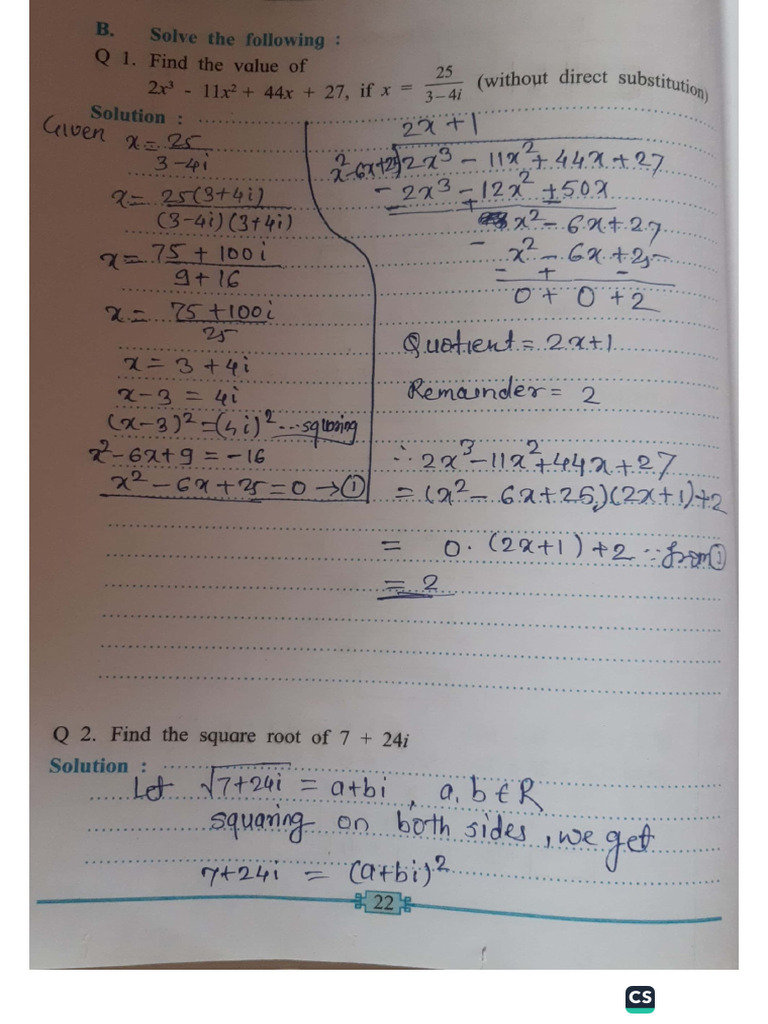 B. Solve the following :
Q 1. Find the value of
2x³ - 11x² + 44x + 27, if x = 25/(3–4i) (without direct substitution)
Solution :
Given x = 25/(3-4i)
x = 25(3+4i)/((3-4i)(3+4i))
x = (75+100i)/(9+16)
x = (75+100i)/25
x = 3+4i
x-3 = 4i
(x-3)² = (4i)² ... squaring
x²-6x+9 = -16
x²-6x+25=0 → ①
2x+1
x²-6x+25)2x³-11x²+44x+27
- 2x³-12x²+50x
+ -
x²-6x+27
- x²-6x+25
- + -
0+0+2
Quotient = 2x+1
Remainder = 2
∴ 2x³-11x²+44x+27
= (x²-6x+25)(2x+1)+2
= 0.(2x+1)+2 ... from ①
= 2
Q 2. Find the square root of 7 + 24i
Solution :
Let √(7+24i) = a+bi, a, b ∈ R
squaring on both sides, we get
7+24i = (a+bi)²
22
CS